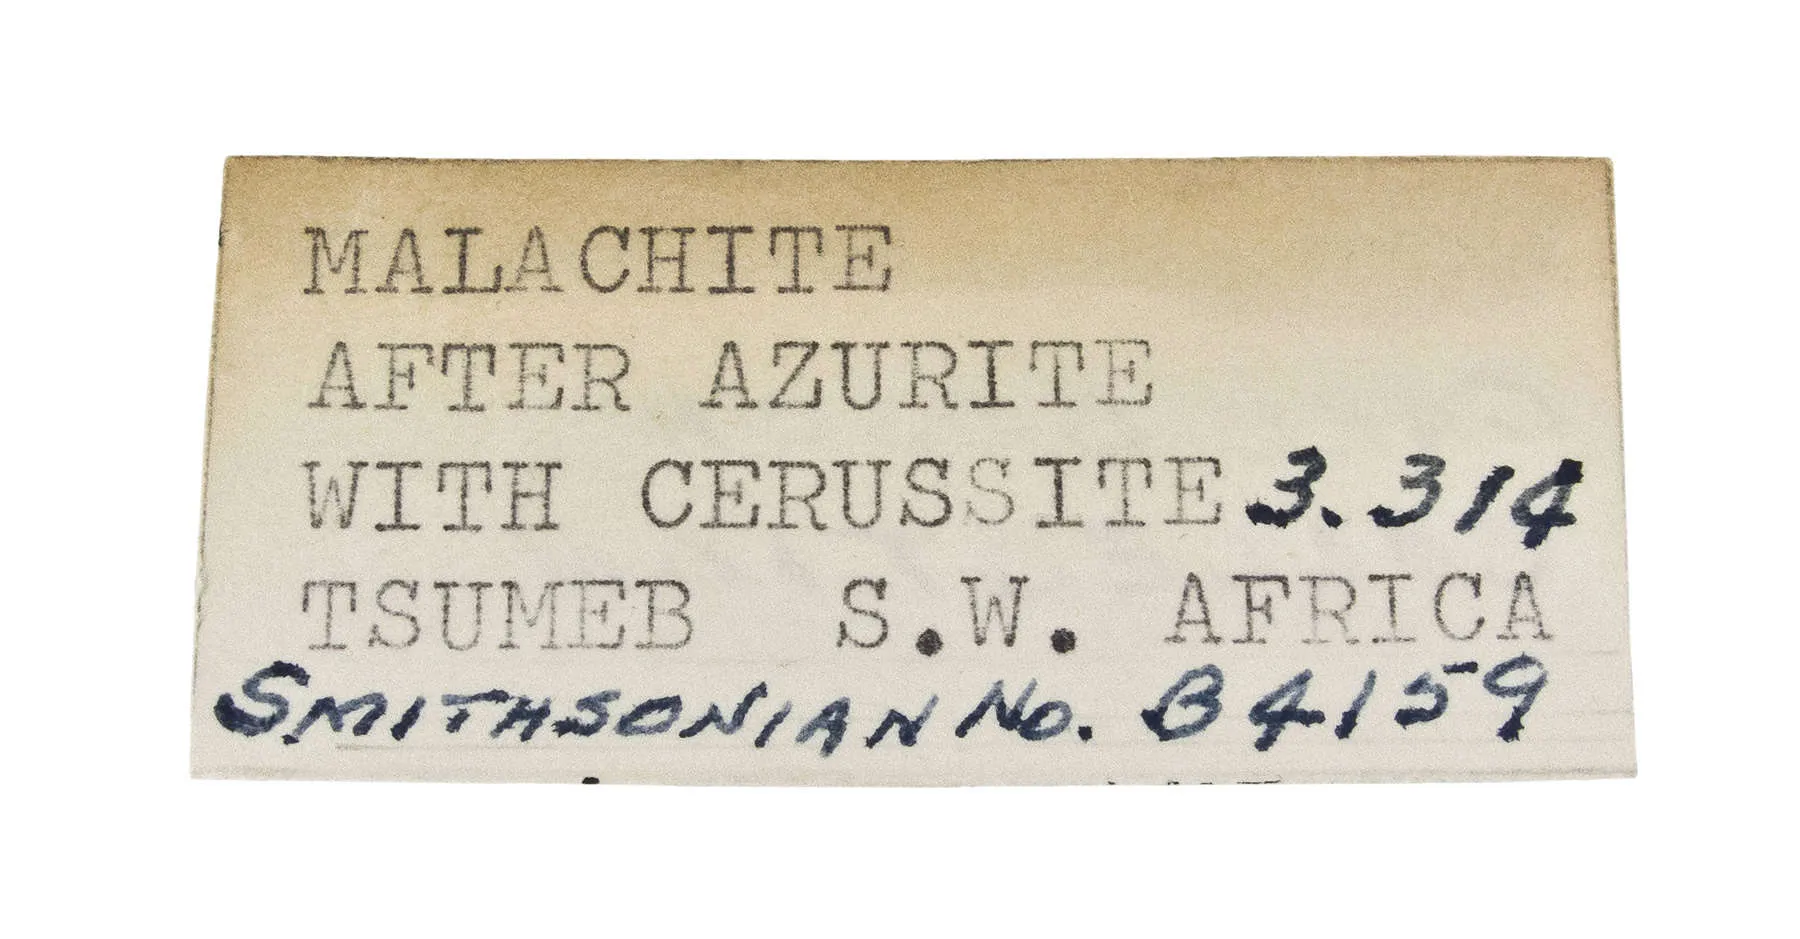 MALACHITE
AFTER AZURITE
WITH CERUSSITE 3.314
TSUMEB S.W. AFRICA
SMITHSONIAN No. B4159